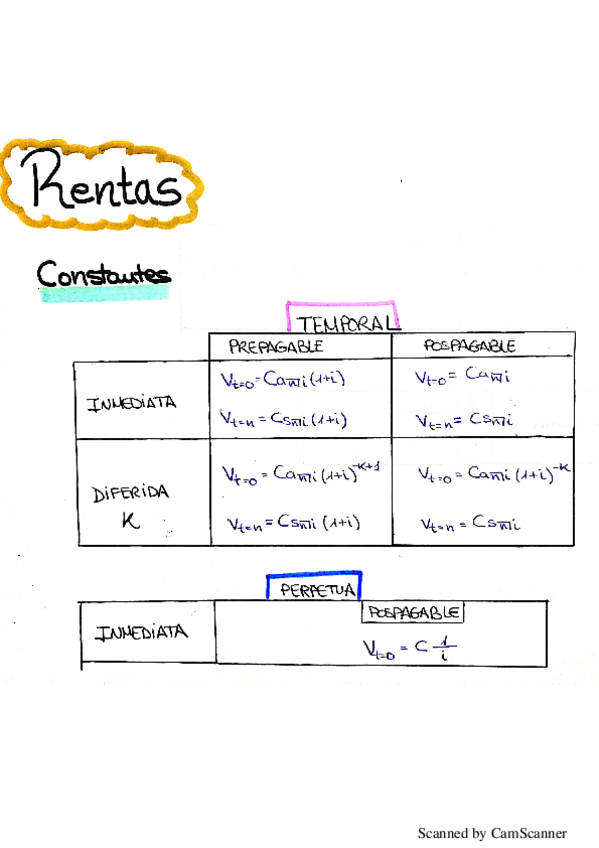 Rentas
Constautes
TEMPORAL
PREPAGABLE POSPAGABLE
INMEDIATA
Vt=0 = Ca n̅|i (1+i) Vt=0 = Ca n̅|i
Vt=n = Cs n̅|i (1+i) Vt=n = Cs n̅|i
DIFERIDA
K
Vt=0 = Ca n̅|i (1+i)^-K+1 Vt=0 = Ca n̅|i (1+i)^-K
Vt=n = Cs n̅|i (1+i) Vt=n = Cs n̅|i
PERPETUA
POSPAGABLE
INMEDIATA
Vt=0 = C 1/i
Scanned by CamScanner